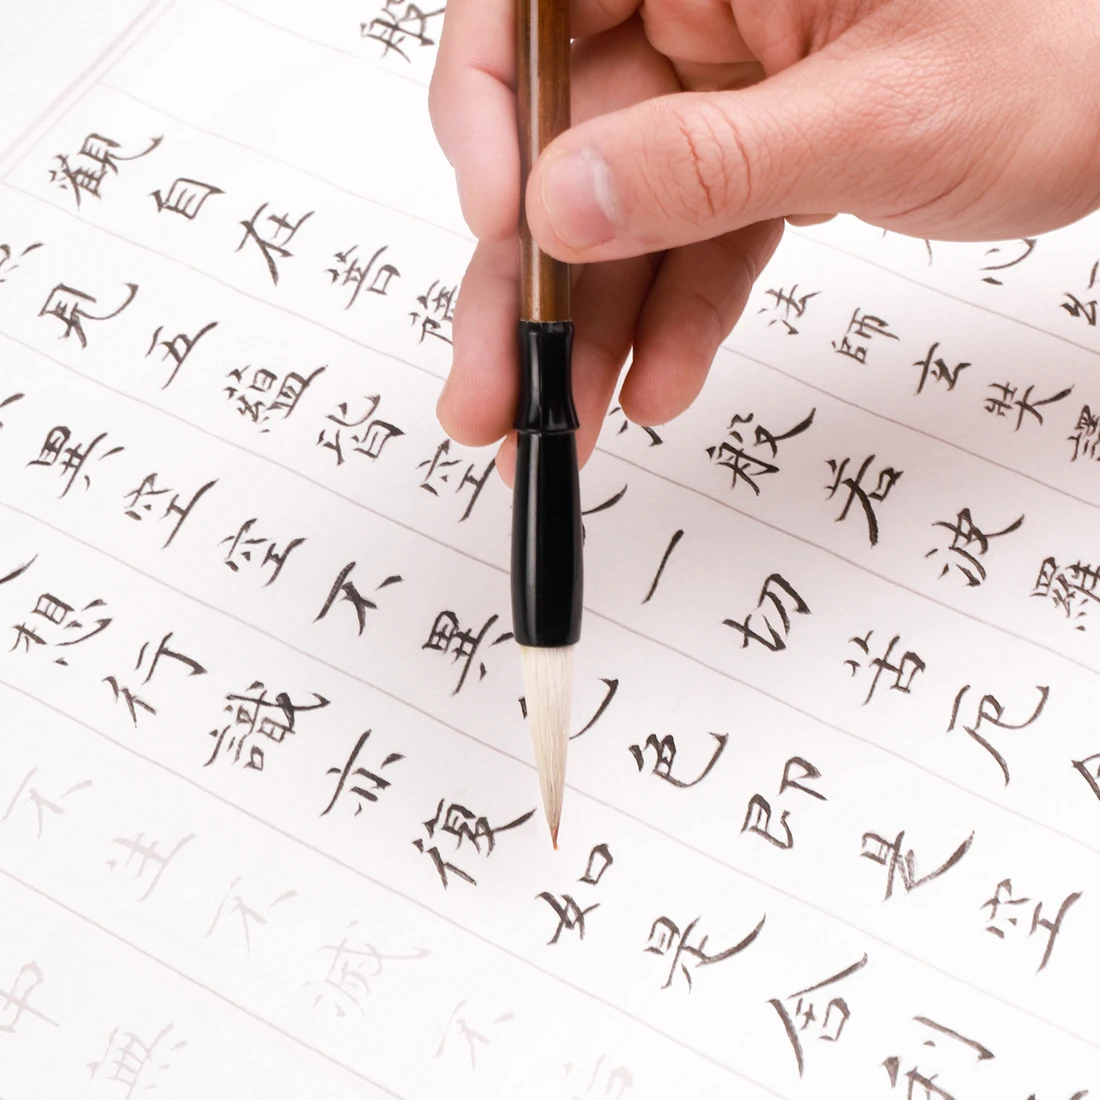 般 心
法師玄奘譯
観自在菩薩 般若波羅
見五蘊皆空 一切苦厄
異空空不異色色即是空
想行識亦復如是舍利
不生不滅不
中無